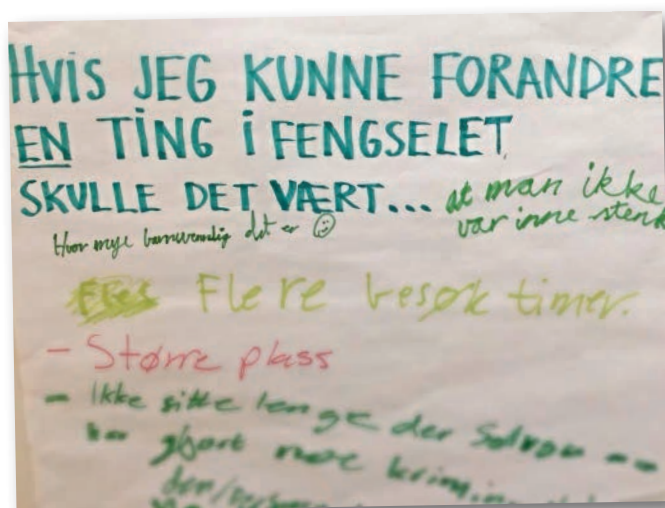 HVIS JEG KUNNE FORANDRE
EN TING i FENGSELET
SKULLE DET VÆRT... at man ikke
var inne stengt
Hvor mye barnevennlig det er ☺
Flere besøk timer.
- Større plass
- Ikke sitte lenge der Selvom
har gjort noe